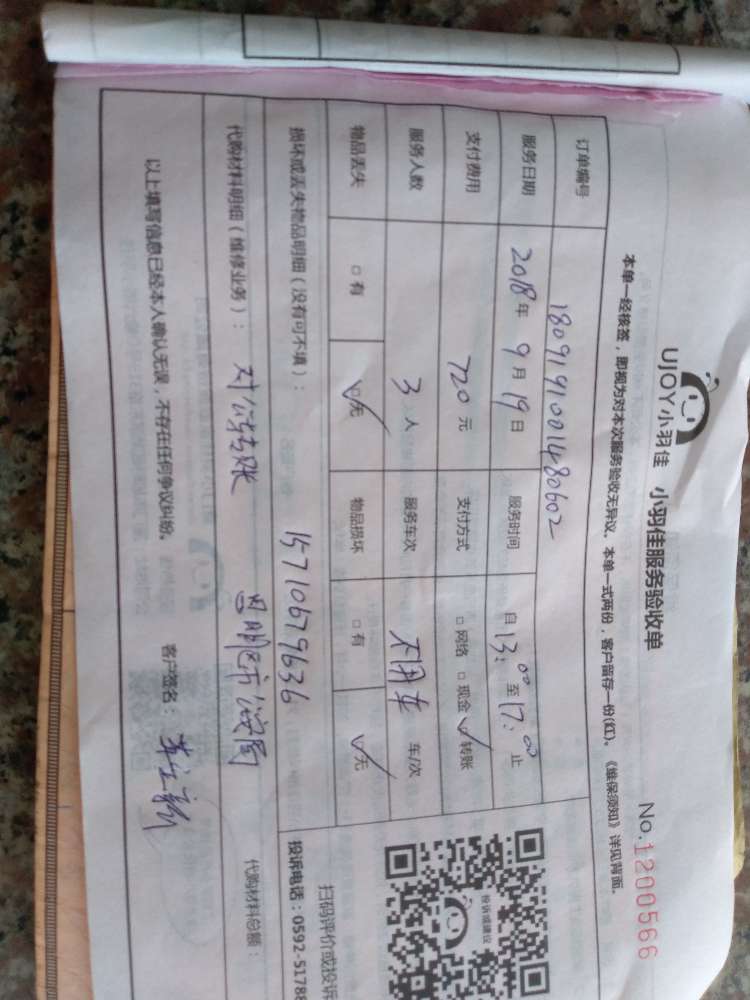 UJOY小羽佳 小羽佳服务验收单 No.1200566
本单一经核签，即视为对本次服务验收无异议。本单一式两份，客户留存一份(红)。《维保须知》详见背面。
订单编号 1809191001480602
服务日期 2018年9月19日 服务时间 自13:00至17:00止
支付费用 720元 支付方式 □网络 □现金 ☑转账
服务人数 3人 服务车次 不用车 车/次
物品丢失 □有 ☑无 物品损坏 □有 ☑无
投诉或建议
扫码评价或投诉
投诉电话：0592-51788
损坏或丢失物品明细（没有可不填）： 15710679636
代购材料明细（维修业务）： 对公转账 代购材料总额：
以上填写信息已经本人确认无误，不存在任何争议纠纷。 客户签名：